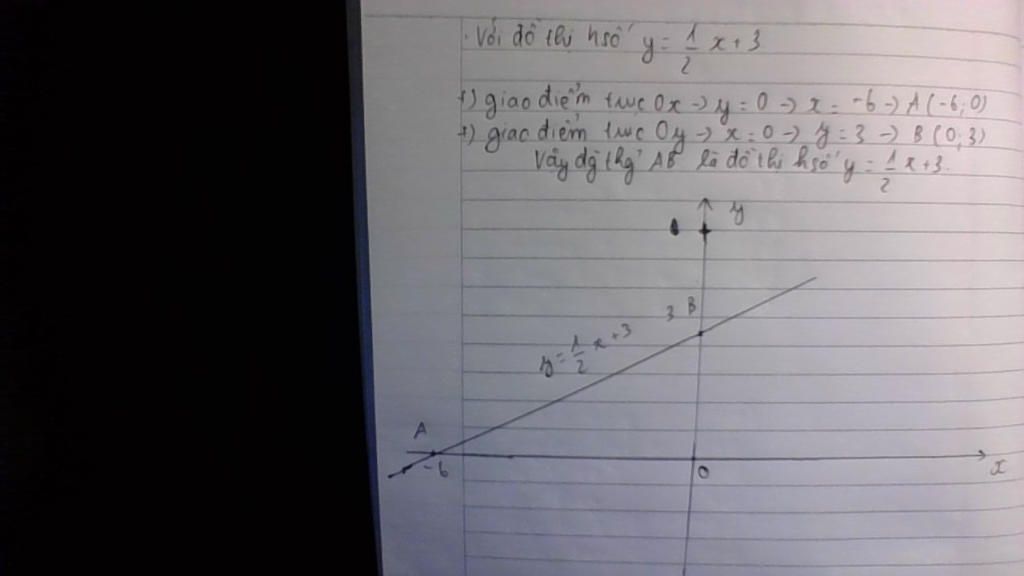 . Với đồ thị hsố y = 1/2 x + 3
+) giao điểm trục Ox → y = 0 → x = -6 → A (-6; 0)
+) giao điểm trục Oy → x = 0 → y = 3 → B (0; 3)
Vậy đg thg AB là đồ thị hsố y = 1/2 x + 3.
y
3 B
y = 1/2 x + 3
A
-6
0
x